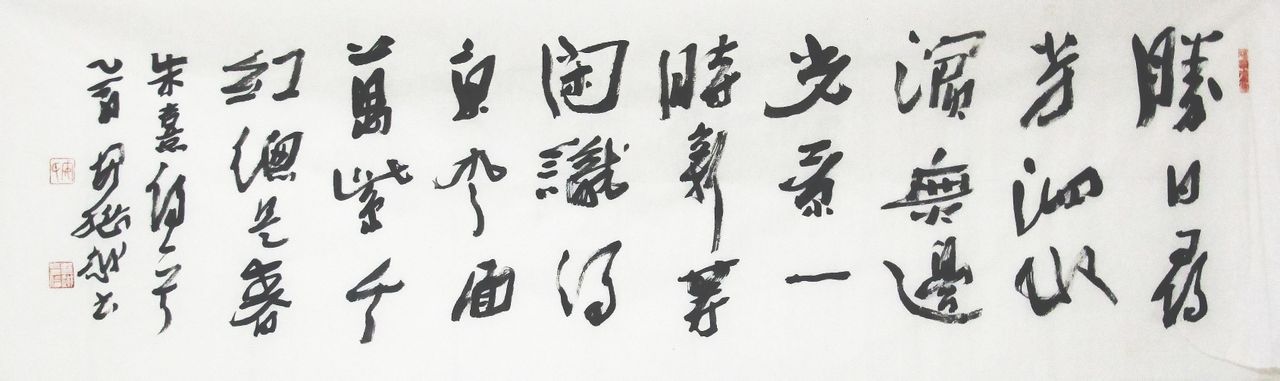 勝日尋
芳泗水
濱無邊
光景一
時新等
閑識得
東風面
萬紫千
紅總是春
朱熹詩一首
乙酉 书